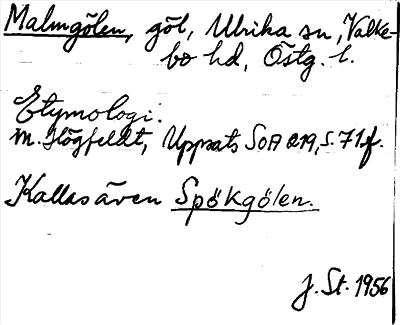 Malmgölen, göl, Ulrika sn, Valke-
bo hd, Östg. l.
Etymologi:
M. Högfeldt, Uppsats SOA 219, s. 71f.
Kallas även Spökgölen.
J. St. 1956